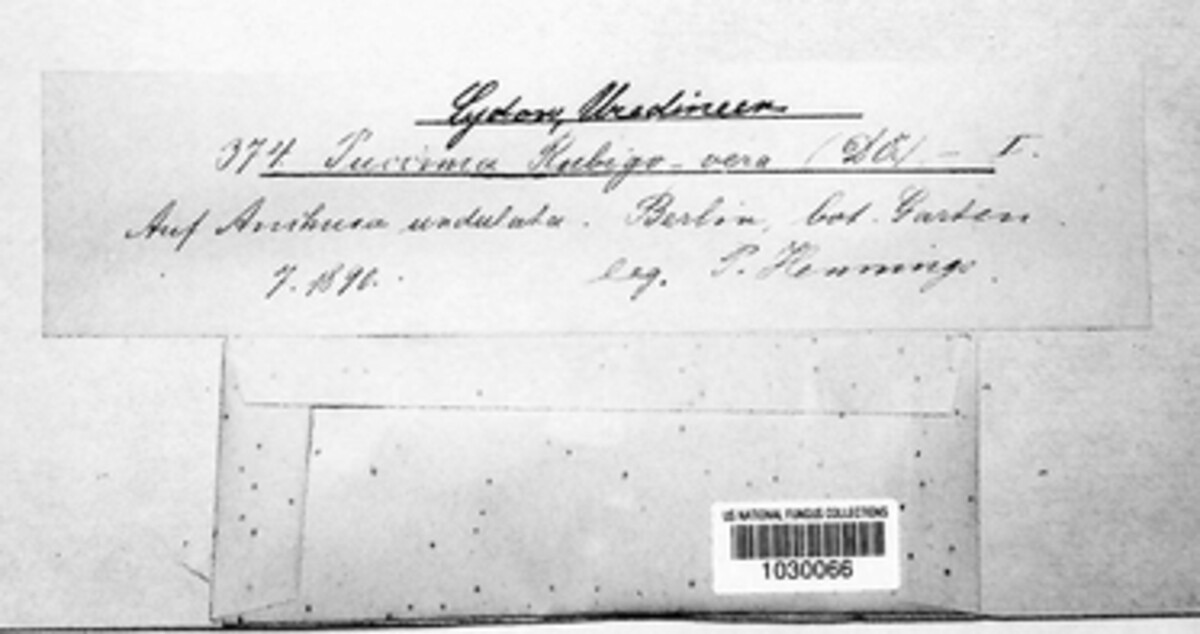 Sydow, Uredineen
374. Puccinia Rubigo-vera (DC) - I.
Auf Anchusa undulata. Berlin, bot. Garten.
7. 1890. leg. P. Hennings.
US NATIONAL FUNGUS COLLECTIONS
1030066